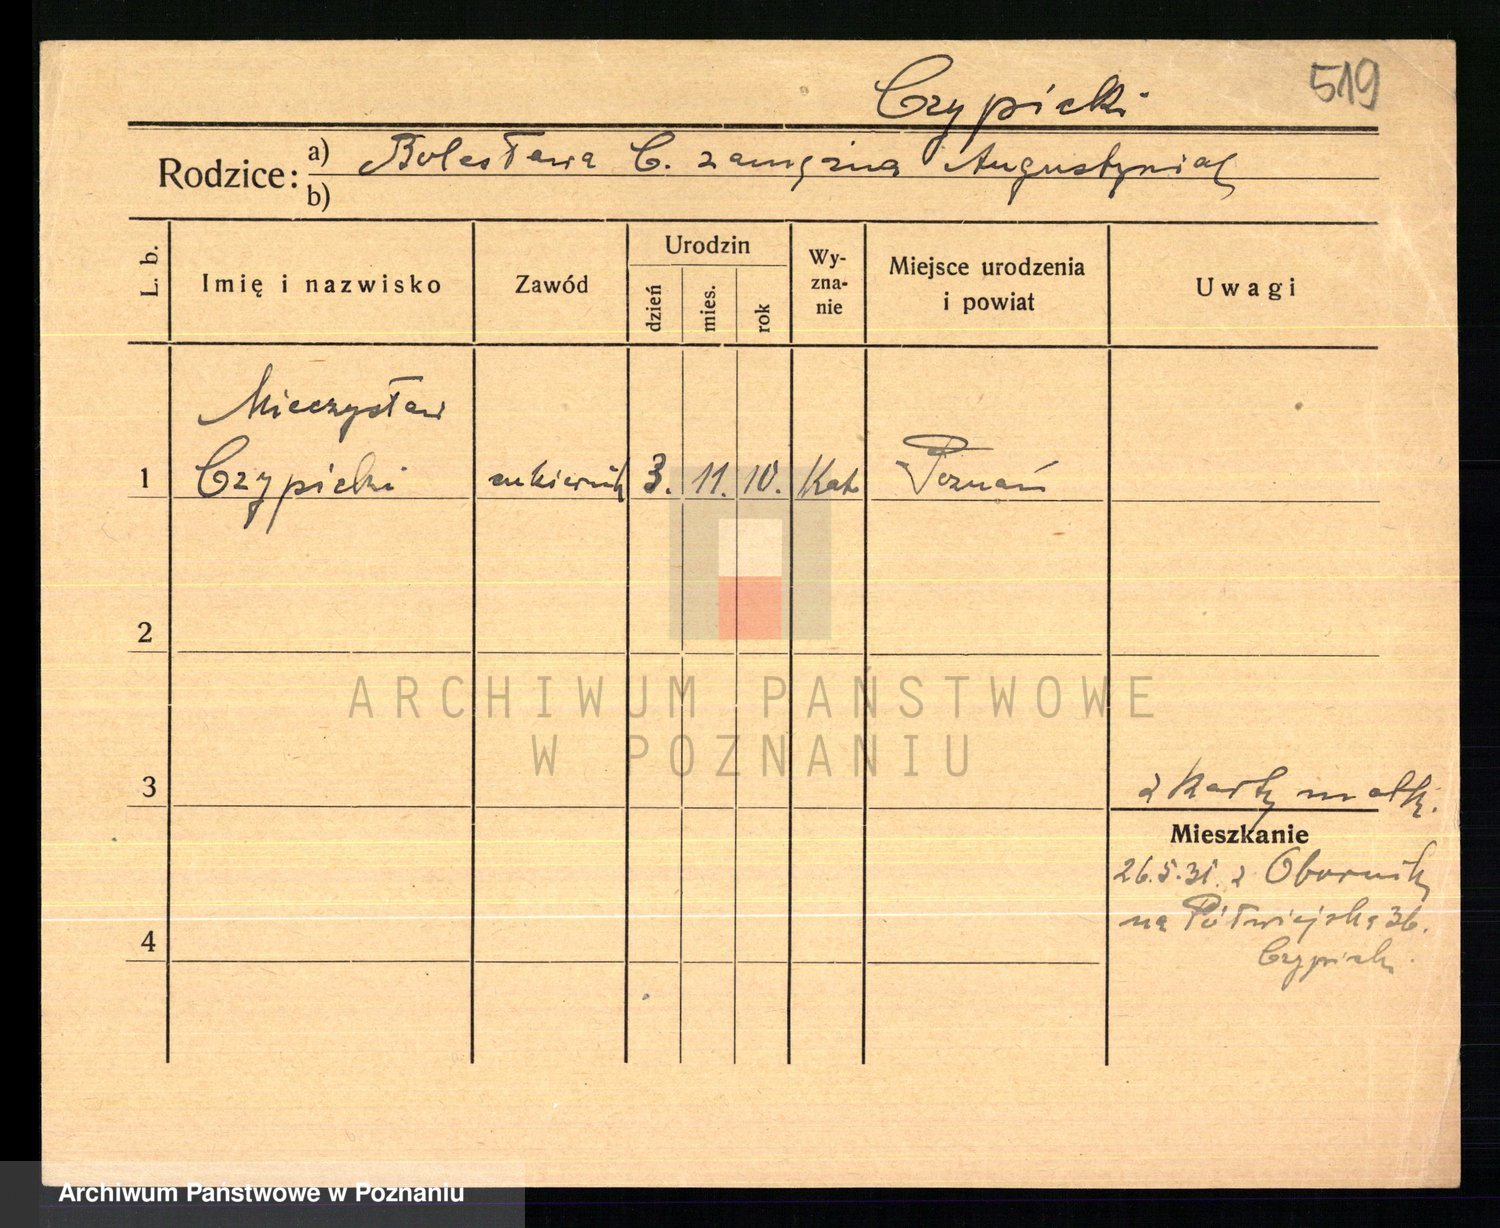 519
Czypicki
Rodzice: a) Bolesława C. zamężna Augustyniak
b)
L. b.
Imię i nazwisko
Zawód
Urodzin
dzień
mies.
rok
Wy-
zna-
nie
Miejsce urodzenia
i powiat
Uwagi
Mieczysław
1 Czypicki cukiernik 3. 11. 10. Kat. Poznań
2
ARCHIWUM PAŃSTWOWE
W POZNANIU
3
z karty matki.
Mieszkanie
26.5.31. z Obornik
na Półwiejska 36.
4
Czypicki
Archiwum Państwowe w Poznaniu